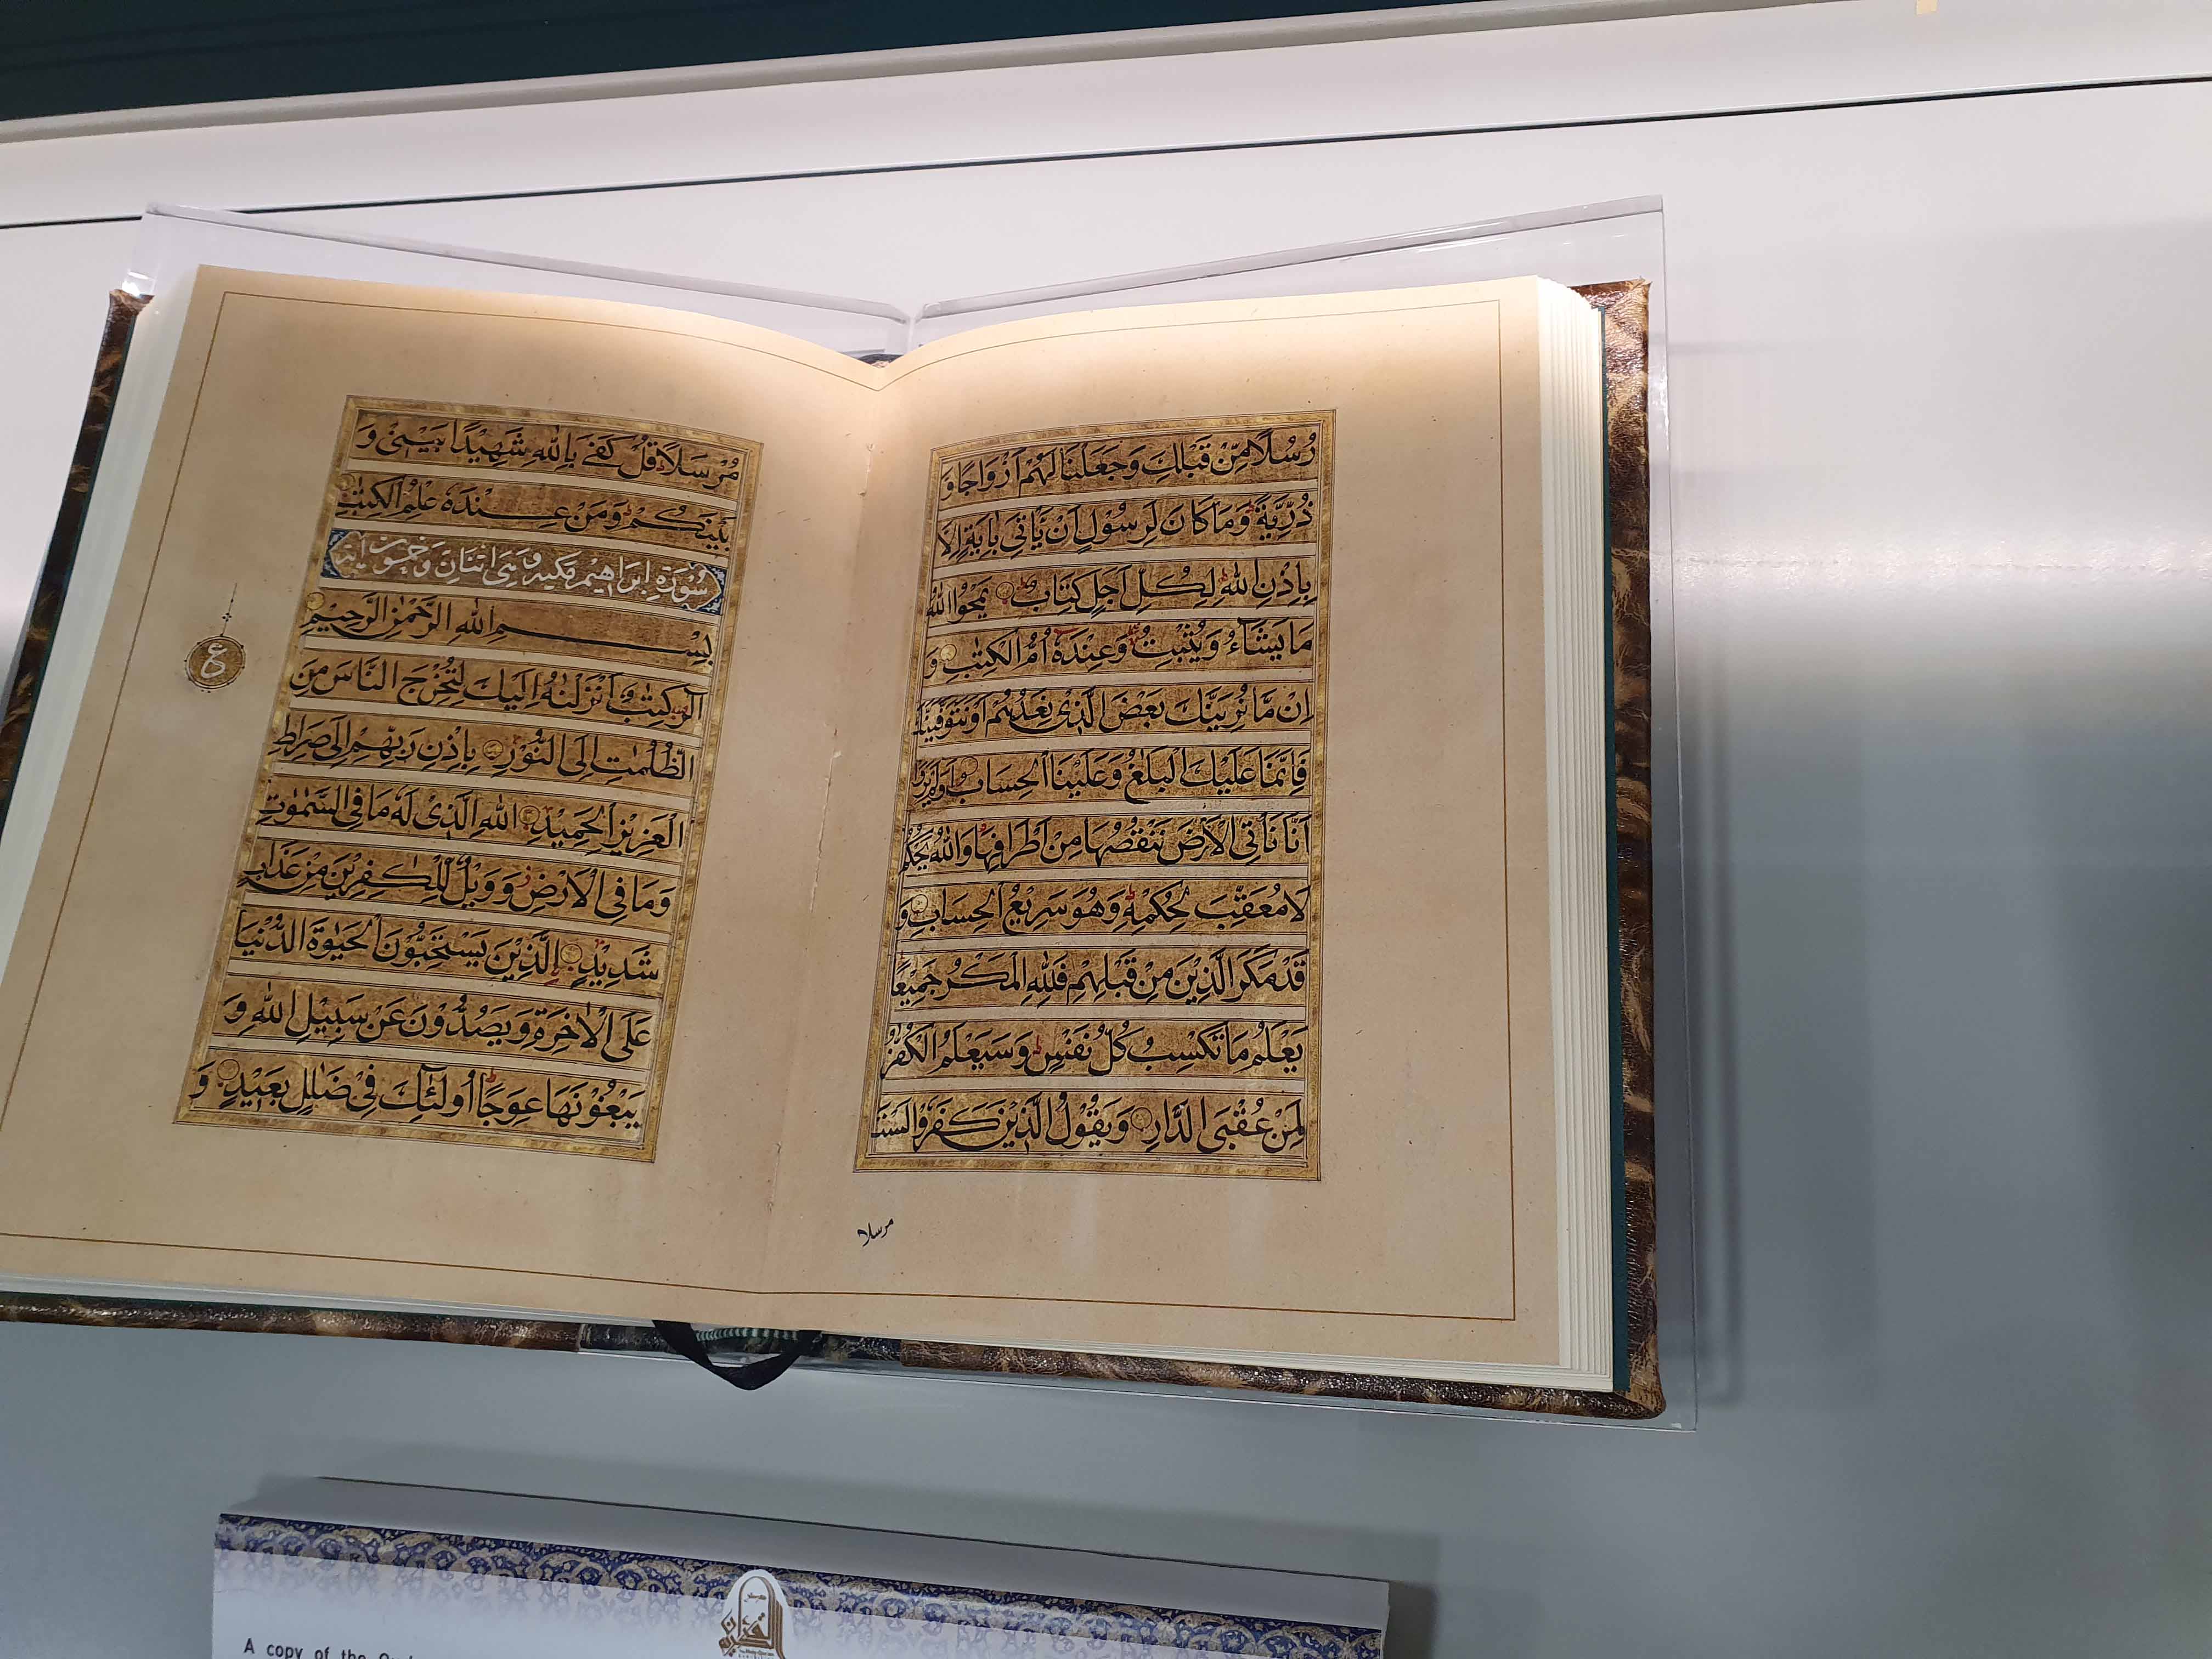 رُسُلًا مِّنْ قَبْلِكَ وَجَعَلْنَا لَهُمْ اَزْوَاجًا وَّ
ذُرِّيَّةً ط وَمَا كَانَ لِرَسُوْلٍ اَنْ يَّاْتِيَ بِاٰيَةٍ اِلَّا
بِاِذْنِ اللّٰهِ ط لِكُلِّ اَجَلٍ كِتَابٌ يَمْحُوا اللّٰهُ
مَا يَشَآءُ وَيُثْبِتُ وَعِنْدَهٗ اُمُّ الْكِتٰبِ وَ
اِنْ مَّا نُرِيَنَّكَ بَعْضَ الَّذِيْ نَعِدُهُمْ اَوْ نَتَوَفَّيَنَّكَ
فَاِنَّمَا عَلَيْكَ الْبَلٰغُ وَعَلَيْنَا الْحِسَابُ اَوَلَمْ يَرَوْا
اَنَّا نَاْتِي الْاَرْضَ نَنْقُصُهَا مِنْ اَطْرَافِهَا وَاللّٰهُ يَحْكُمُ
لَا مُعَقِّبَ لِحُكْمِهٖ ط وَهُوَ سَرِيْعُ الْحِسَابِ وَ
قَدْ مَكَرَ الَّذِيْنَ مِنْ قَبْلِهِمْ فَلِلّٰهِ الْمَكْرُ جَمِيْعًا
يَعْلَمُ مَا تَكْسِبُ كُلُّ نَفْسٍ ط وَسَيَعْلَمُ الْكُفّٰرُ
لِمَنْ عُقْبَى الدَّارِ وَيَقُوْلُ الَّذِيْنَ كَفَرُوْا لَسْتَ
مرسلا
مُرْسَلًا قُلْ كَفٰى بِاللّٰهِ شَهِيْدًا بَيْنِيْ وَ
بَيْنَكُمْ وَمَنْ عِنْدَهٗ عِلْمُ الْكِتٰبِ
سُوْرَةُ اِبْرَاهِيْمَ مَكِّيَةٌ وَهِيَ اثْنَانِ وَخَمْسُوْنَ اٰيَة
بِسْمِ اللّٰهِ الرَّحْمٰنِ الرَّحِيْمِ
الٓرٰ كِتٰبٌ اَنْزَلْنٰهُ اِلَيْكَ لِتُخْرِجَ النَّاسَ مِنَ
ع
الظُّلُمٰتِ اِلَى النُّوْرِ بِاِذْنِ رَبِّهِمْ اِلٰى صِرَاطِ
الْعَزِيْزِ الْحَمِيْدِ اللّٰهِ الَّذِيْ لَهٗ مَا فِي السَّمٰوٰتِ
وَمَا فِي الْاَرْضِ وَوَيْلٌ لِّلْكٰفِرِيْنَ مِنْ عَذَابٍ
شَدِيْدٍ الَّذِيْنَ يَسْتَحِبُّوْنَ الْحَيٰوةَ الدُّنْيَا
عَلَى الْاٰخِرَةِ وَيَصُدُّوْنَ عَنْ سَبِيْلِ اللّٰهِ وَ
يَبْغُوْنَهَا عِوَجًا اُولٰٓئِكَ فِيْ ضَلٰلٍ بَعِيْدٍ وَ
القرآن
A copy of the